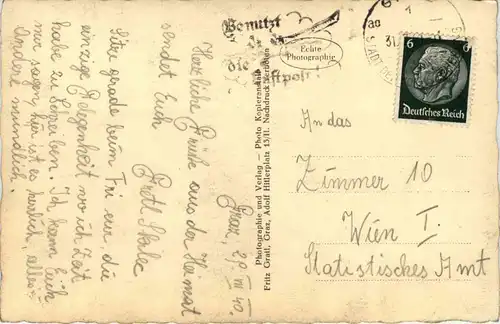 Graz, 29. VII 40.
Herzliche Grüße aus der Heimat
sendet Euch
Gretl
Sitze grade beim Friseur, die
einzige Gelegenheit wo ich Zeit
habe zu Schreiben. Ich kann Euch
nur sagen, hier ist es herrlich, alles
Andere mündlich.
Photographie und Verlag – Photo Kopieranstalt
Fritz Gratl, Graz, Adolf Hitlerplatz 13/II. Nachdruck verboten
Echte
Photographie
Benutzt
die Luftpost!
31
STADT DER
6 6
Deutsches Reich
An das
Zimmer 10
Wien I.
Statistisches Amt